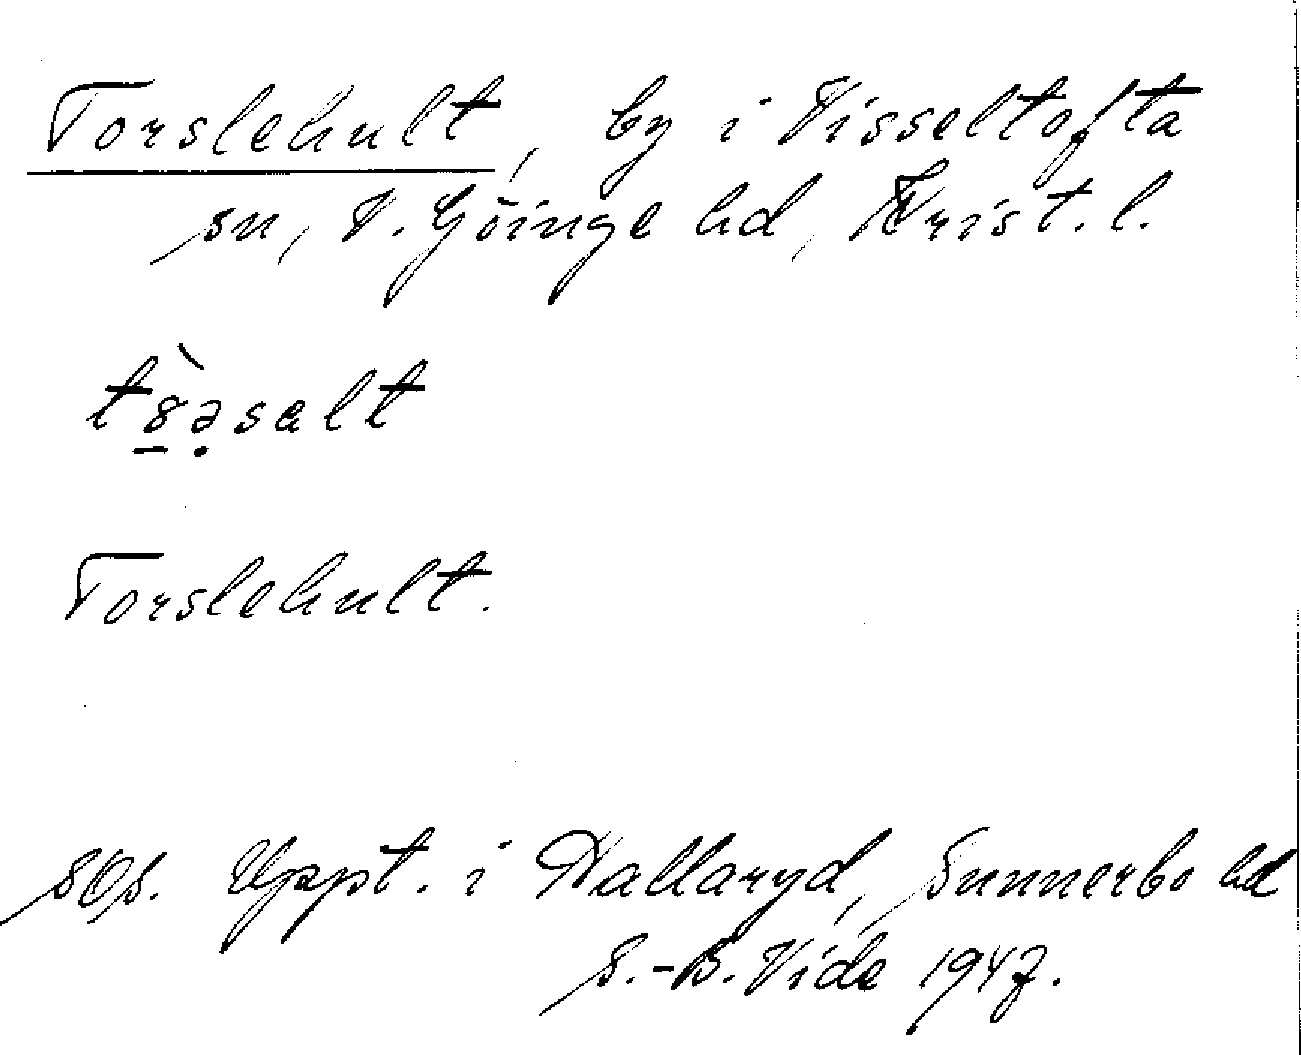 Torslehult, by i Visseltofta
sn, V. Göinge hd, Krist. l.
Torslehult.
sös. Uppt. i Hallaryd, Sunnerbo hd
S.-B. Vide 1947.